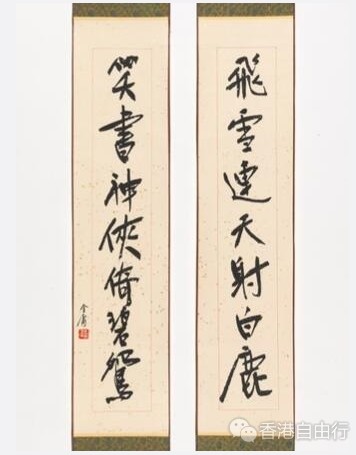 飛雪連天射白鹿
笑書神俠倚碧鴛
金庸
香港自由行